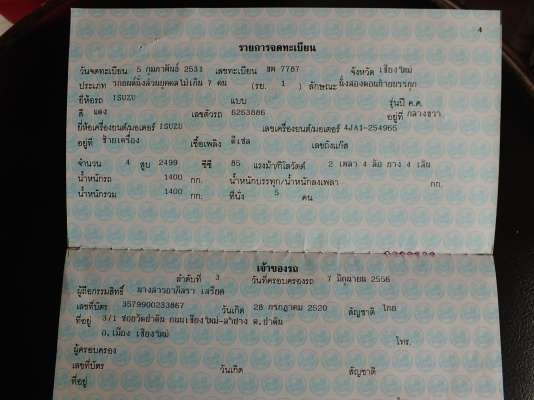 4
รายการจดทะเบียน
วันจดทะเบียน 5 กุมภาพันธ์ 2531 เลขทะเบียน 7787 จังหวัด เชียงใหม่
ประเภท รถยนต์นั่งส่วนบุคคลไม่เกิน 7 คน (รย. 1 ) ลักษณะ นั่งสองตอนท้ายบรรทุก
ยี่ห้อรถ ISUZU แบบ รุ่นปี ค.ศ.
สี แดง เลขตัวรถ 6263886 อยู่ที่ กลางขวา
ยี่ห้อเครื่องยนต์/มอเตอร์ ISUZU เลขเครื่องยนต์/มอเตอร์ 4JA1-254965
อยู่ที่ ซ้ายเครื่อง เชื้อเพลิง ดีเซล เลขถังแก๊ส
จำนวน 4 สูบ 2499 ซีซี 85 แรงม้า/กิโลวัตต์ 2 เพลา 4 ล้อ ยาง 4 เส้น
น้ำหนักรถ 1400 กก. น้ำหนักบรรทุก/น้ำหนักลงเพลา กก.
น้ำหนักรวม 1400 กก. ที่นั่ง 5 คน
เจ้าของรถ
ลำดับที่ 3 วันที่ครอบครองรถ 7 มิถุนายน 2556
ผู้ถือกรรมสิทธิ์ นางสาวอาภัสรา
เลขที่บัตร 3579900233867 วันเกิด 28 กรกฎาคม 2520 สัญชาติ ไทย
ที่อยู่ 3/1 ซอยวัดป่าตัน ถนนเชียงใหม่-ลำปาง ต.ป่าตัน
อ.เมือง เชียงใหม่ โทร.
ผู้ครอบครอง
เลขที่บัตร วันเกิด สัญชาติ
ที่อยู่